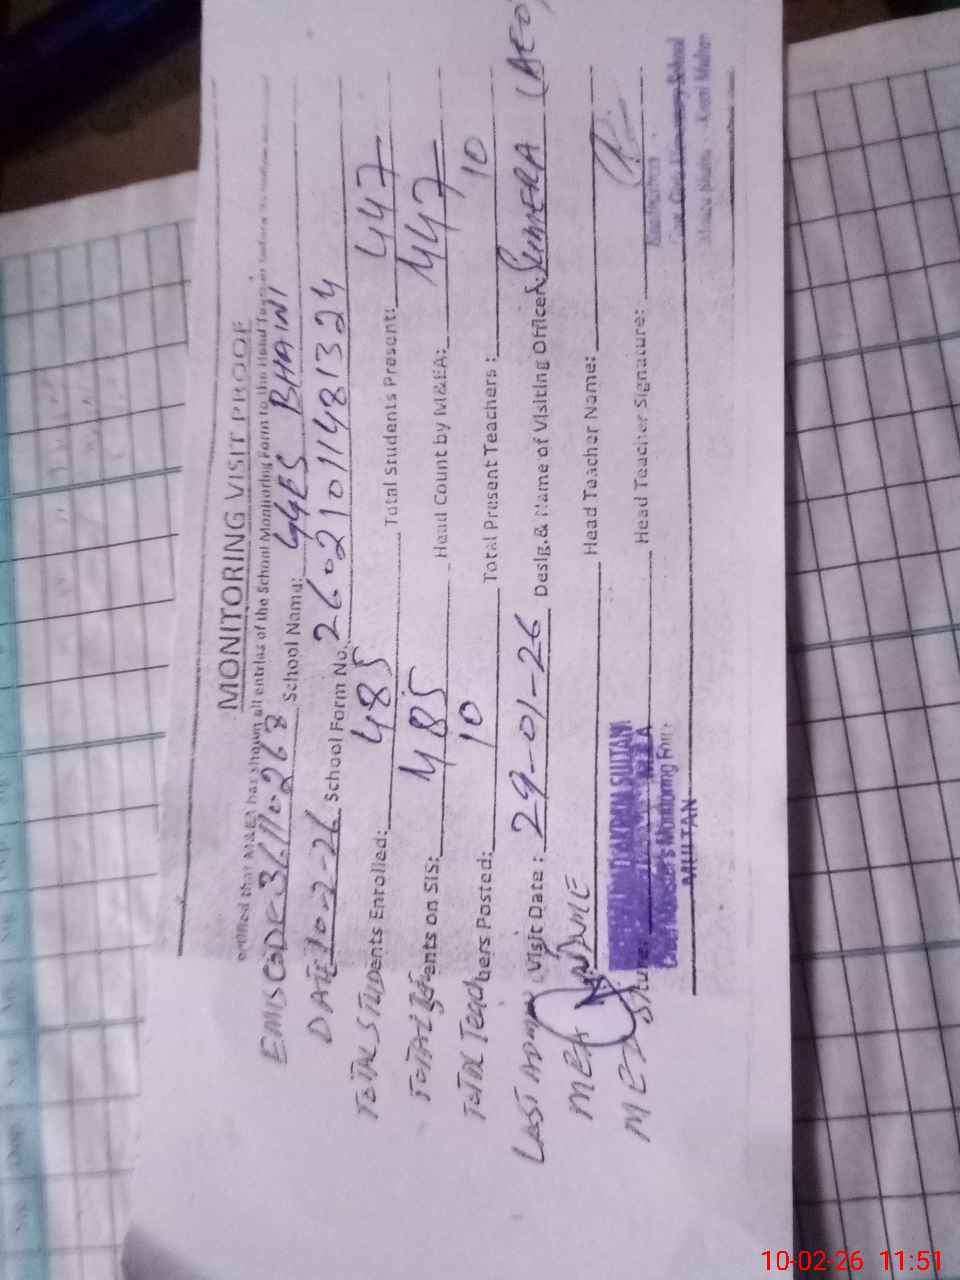 MONITORING VISIT PROOF
that MNEA has shown all entries of the School Monitoring Form to the Head Teacher before
EMIS CODE: 36110268 School Name: GGES BHAINI
DATE 10-2-26 School Form No. 26021011481324
TOTAL STUDents Enrolled: 485 Total Students Present: 447
TOTAL ents on SIS: 485 Head Count by M&EA: 447
TOTAL Teachers Posted: 10 Total Present Teachers : 10
LAST ADMN Visit Date : 29-01-26 Desig.& Name of Visiting Officer: SUMERA (AEO)
MEA NAME Head Teacher Name:
SULTANI
Head Teacher Signature:
Chief Minister's Monitoring Force
MULTAN
Headmistress
Govt. Girls Elementary School
10-02-26 11:51